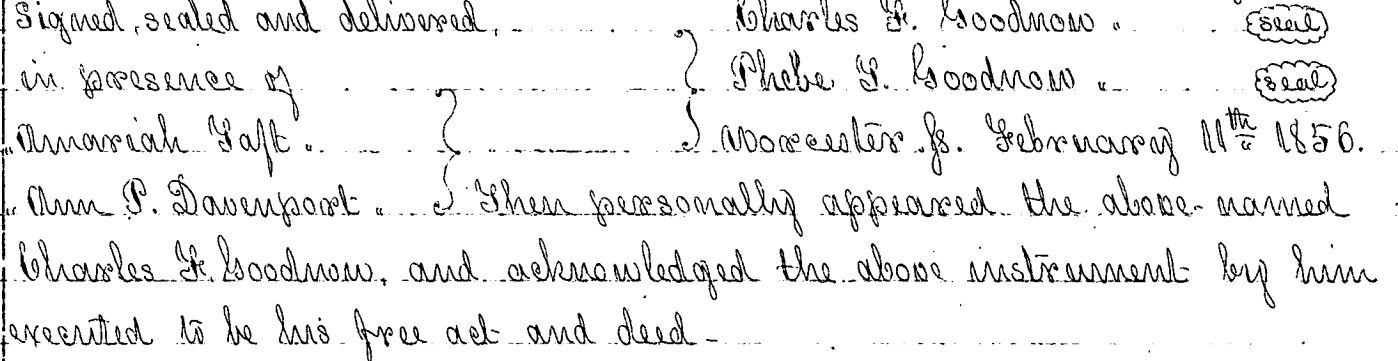 Signed, sealed and delivered, Charles F. Goodnow. seal
in presence of Phebe F. Goodnow. seal
Amariah Taft. Worcester ss. February 11th 1856.
Ann P. Davenport. Then personally appeared the above-named
Charles F. Goodnow, and acknowledged the above instrument by him
executed to be his free act and deed-